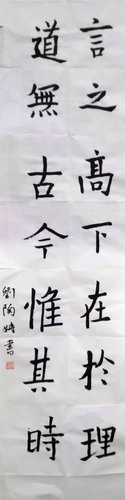 言之高下在於理
道無古今惟其時
劉陶婷書